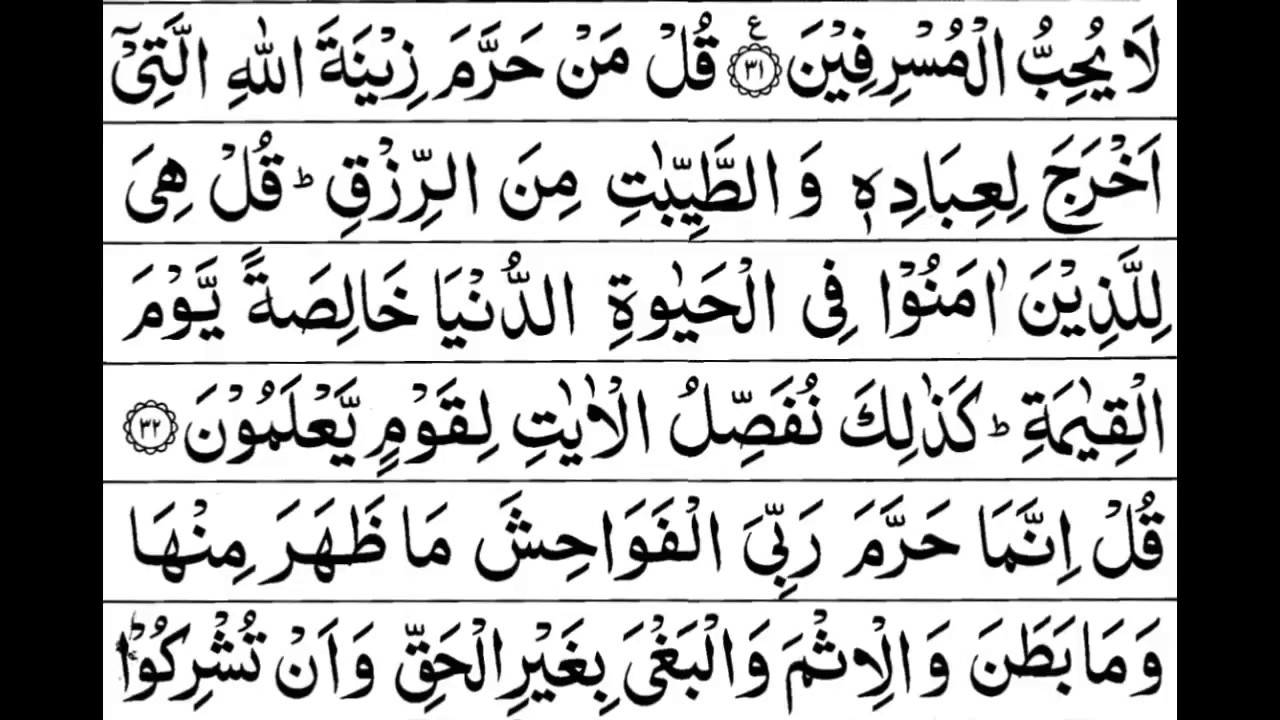 لَا يُحِبُّ الْمُسْرِفِيْنَ ۝٣١ۧ قُلْ مَنْ حَرَّمَ زِيْنَةَ اللّٰهِ الَّتِيْۤ
اَخْرَجَ لِعِبَادِهٖ وَالطَّيِّبٰتِ مِنَ الرِّزْقِؕ قُلْ هِيَ
لِلَّذِيْنَ اٰمَنُوْا فِي الْحَيٰوةِ الدُّنْيَا خَالِصَةً يَّوْمَ
الْقِيٰمَةِؕ كَذٰلِكَ نُفَصِّلُ الْاٰيٰتِ لِقَوْمٍ يَّعْلَمُوْنَ ۝٣٢
قُلْ اِنَّمَا حَرَّمَ رَبِّيَ الْفَوَاحِشَ مَا ظَهَرَ مِنْهَا
وَمَا بَطَنَ وَالْاِثْمَ وَالْبَغْيَ بِغَيْرِ الْحَقِّ وَاَنْ تُشْرِكُوْا